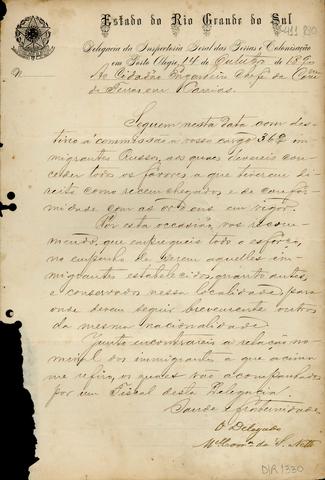 Estado do Rio Grande do Sul
Delegacia da Inspectoria Geral das Terras e Colonisação
em Porto Alegre, 14 de Outubro de 1890
Ao Cidadão Engenheiro Chefe da Com
de Terras em
Seguem nesta data com des-
tino á commissão a vosso cargo 362 im-
migrantes Russos, aos quaes devereis con-
ceder todos os favores a que tiverem di-
reito como recemchegados e de confor-
midade com as ordens em vigor.
Por esta occasião, vos recom-
mendo, que empregueis todo o esforço,
no empenho de serem aquelles im-
migrantes estabelecidos, quanto antes,
e conservados nessa localidade, para
onde devem seguir brevemente outros
da mesma nacionalidade.
Junto encontrareis a relação no-
minal dos immigrantes a que acima
me refiro, os quaes vão acompanhados
por um Fiscal desta Delegacia.
Saude e fraternidade
O Delegado
da S. Netto
DIR 1330